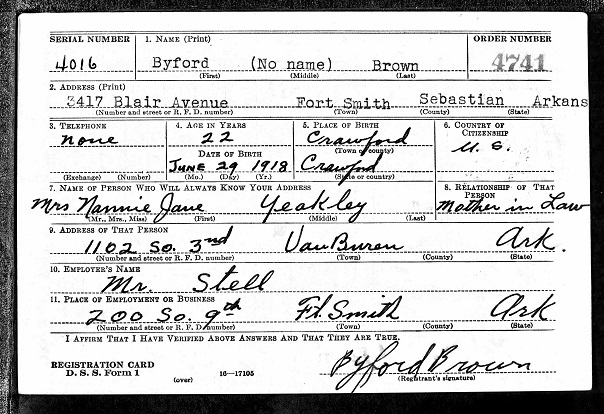 SERIAL NUMBER 1. NAME (Print) ORDER NUMBER
4016 Byford (No name) Brown 4741
(First) (Middle) (Last)
2. ADDRESS (Print)
3417 Blair Avenue Fort Smith Sebastian Arkans
(Number and street or R. F. D. number) (Town) (County) (State)
3. TELEPHONE 4. AGE IN YEARS 5. PLACE OF BIRTH 6. COUNTRY OF CITIZENSHIP
None 22 Crawford U. S.
DATE OF BIRTH (Town or county)
JUNE 29 1918 Crawford
(Exchange) (Number) (Mo.) (Day) (Yr.) (State or country)
7. NAME OF PERSON WHO WILL ALWAYS KNOW YOUR ADDRESS 8. RELATIONSHIP OF THAT PERSON
Mrs Nannie Jane Yeakley Mother in Law
(Mr., Mrs., Miss) (First) (Middle) (Last)
9. ADDRESS OF THAT PERSON
1102 So. 3nd Van Buren Ark.
(Number and street or R. F. D. number) (Town) (County) (State)
10. EMPLOYER'S NAME
Mr. Stell
11. PLACE OF EMPLOYMENT OR BUSINESS
200 So. 9th Ft. Smith Ark
(Number and street or R. F. D. number) (Town) (County) (State)
I AFFIRM THAT I HAVE VERIFIED ABOVE ANSWERS AND THAT THEY ARE TRUE.
Byford Brown
REGISTRATION CARD
D. S. S. Form 1 (over) 16—17105 (Registrant's signature)